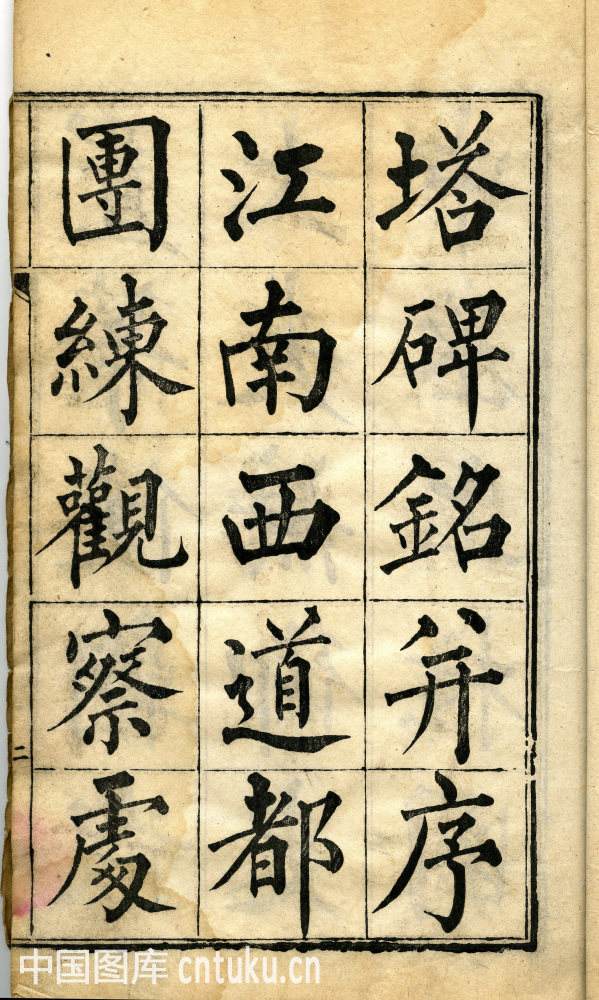 塔碑銘并序
江南西道都
團練觀察處
二
中国图库 cntuku.cn